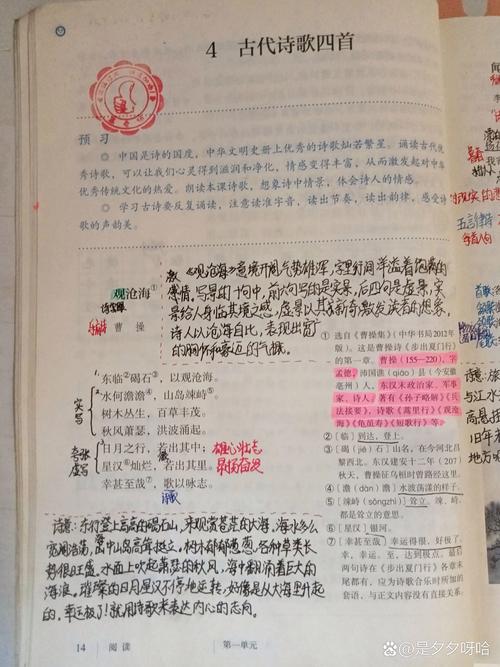 4 古代诗歌四首
预 习
◇ 中国是诗的国度，中华文明史册上优秀的诗歌灿若繁星。诵读古代优
秀诗歌，可以让我们心灵得到滋润和净化，情感变得丰富，从而激发起对中华
优秀传统文化的热爱。朗读本课诗歌，想象诗中情景，体会诗人的情感。
◇ 学习古诗要反复诵读，注意读准字音，读出节奏，读出韵律，感受诗
歌的声韵美。
《观沧海》意境开阔气势雄浑，字里行间洋溢着饱满的
感情，写景的十句中，前六句写的是实景，后四句是虚景，实
景给人身临其境之感，虚景以其新奇激发读者的想象，
诗人以沧海自比，表现出宽广
的胸怀和豪迈的气概。
观沧海①
曹 操
东临②碣石③，以观沧海。
水何澹澹④，山岛竦峙⑤。
树木丛生，百草丰茂。
秋风萧瑟，洪波涌起。
日月之行，若出其中；
星汉⑥灿烂，若出其里。
幸甚至哉⑦，歌以咏志。
实写
夸张
虚写
雄心壮志
昂扬奋发
① 选自《曹操集》（中华书局2012年
版）。这是曹操诗《步出夏门行》
的第一章。曹操（155—220），字
孟德，沛国谯（qiáo）县（今安徽
亳州）人，东汉末政治家、军事
家、诗人。著有《孙子略解》《兵
法接要》，诗歌《蒿里行》《观沧
海》《龟虽寿》《短歌行》等。
②〔临〕到达，登上。
③〔碣（jié）石〕山名，在今河北昌
黎西北。东汉建安十二年（207）
秋天，曹操征乌桓时曾路经这里。
④〔澹（dàn）澹〕水波荡漾的样子。
⑤〔竦峙（sǒngzhì）〕耸立。竦、峙，
都是耸立的意思。
⑥〔星汉〕银河。
⑦〔幸甚至哉〕幸运得很，好极了。
幸，幸运。至，达到极点。最后
两句诗在《步出夏门行》各章末
尾都有，应为诗歌合乐时所加的
套语，与正文内容没有直接关系。
诗意：东行登上高高的碣石山，来观赏苍茫的大海，海水多么
宽阔浩荡，海中山岛高耸挺立。树木郁郁葱葱，各种草类长
势很旺盛，水面上吹起萧瑟的秋风，海中翻涌着巨大的
海浪，璀璨的日月星汉不停地运转，好像是从大海里升起
的，幸运极了！就用诗歌来表达内心的志向。
14 阅读 第一单元
@是夕夕呀哈